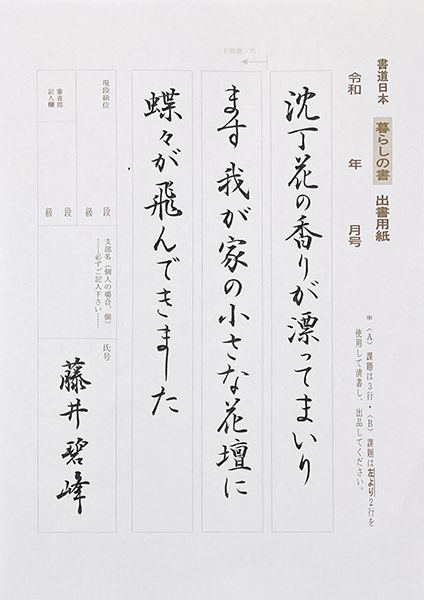 書道日本 暮らしの書 出書用紙
令和 年 月号
＊〈A〉課題は3行・〈B〉課題は左より2行を
使用して清書し、出品してください。
沈丁花の香りが漂ってまいり
ます 我が家の小さな花壇に
蝶々が飛んできました
現段級位
審査部
記入欄
段 級
段 級
支部名（個人の場合、個）
……必ずご記入下さい……
氏号
藤井碧峰